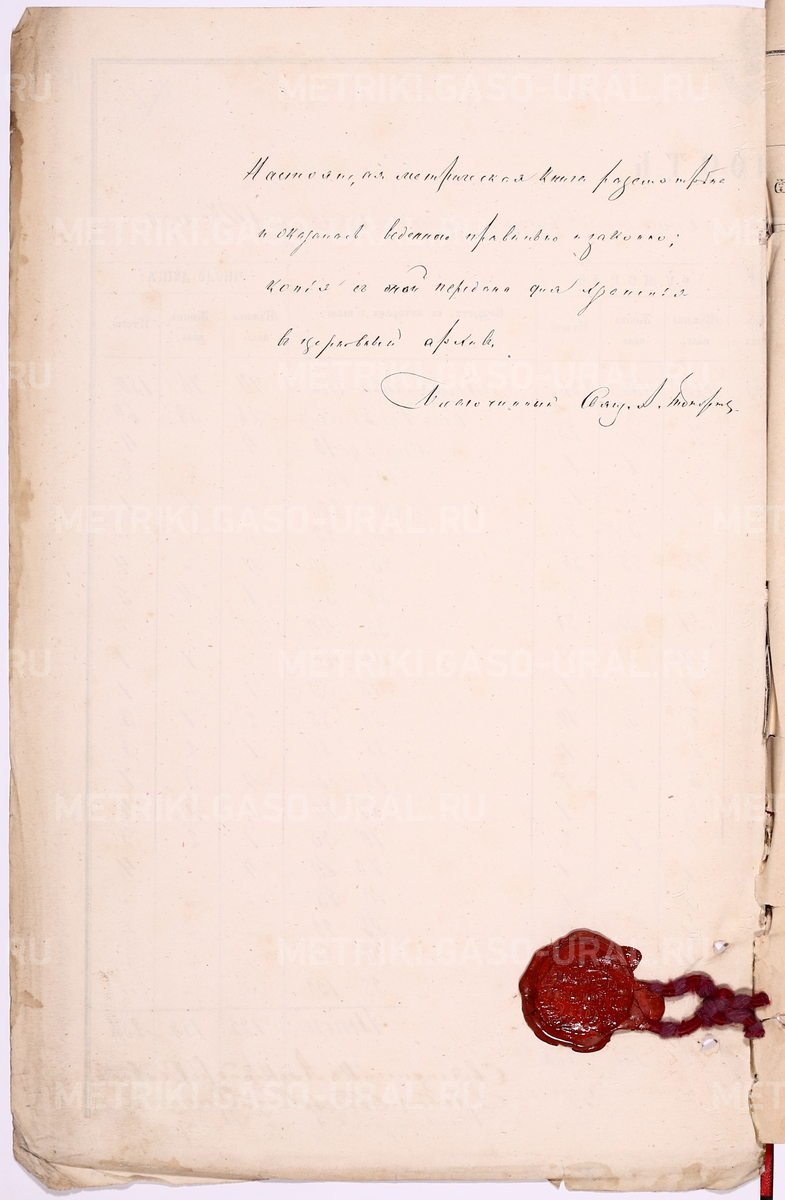 Настоящая метрическая книга разсмотрена
и оказалась веденною правильно и законно;
копія съ оной передана для храненія
въ церковный архивъ.
Благочинный Свящ. А.
METRIKI.GASO-URAL.RU